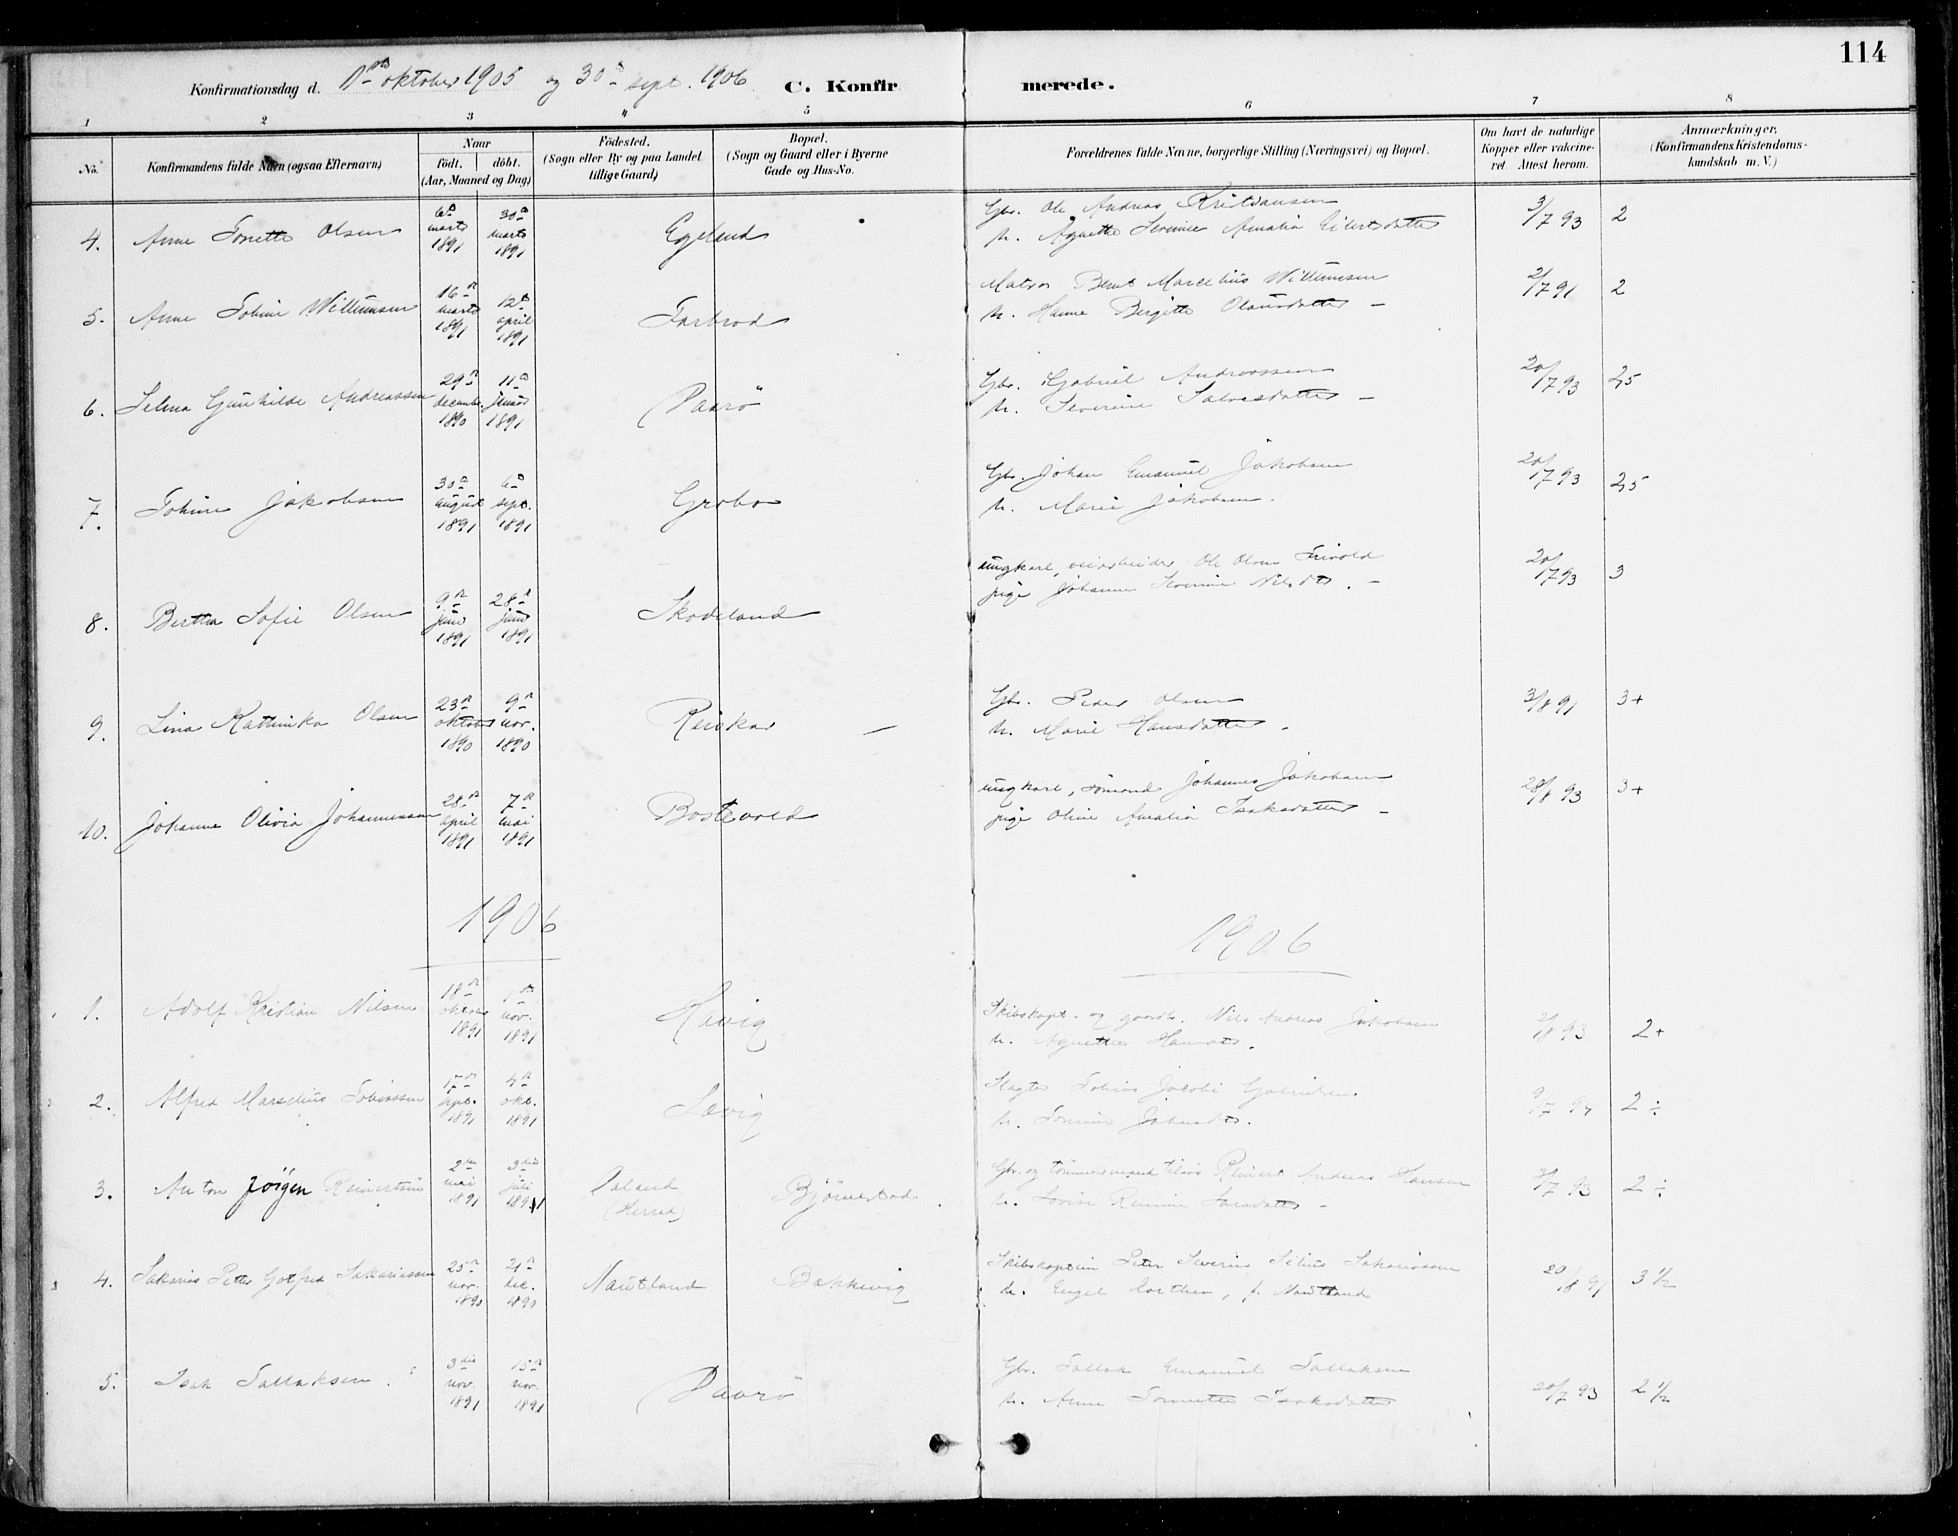 114
Konfirmationsdag d. 1ste oktober 1905 og 30te sept. 1906. C. Konfirmerede.
1 2 3 4 5 6 7 8
No. Konfirmandens fulde Navn (ogsaa Efternavn) Naar födt. döbt. (Aar, Maaned og Dag) Födested. (Sogn eller By og paa Landet tillige Gaard) Bopæl. (Sogn og Gaard eller i Byerne Gade og Hus-No. Forældrenes fulde Navne, borgerlige Stilling (Næringsvei) og Bopæl. Om havt de naturlige Kopper eller vaccineret. Attest herom. Anmærkninger, (Konfirmandens Kristendomskundskab m. V.)
4. Anne Tonette Olsen 6te marts 1891 30te marts 1891 Egeland Gbr. Ole Andreas Kristiansen 3/7 93 2
h. Agnette Severine Amalia Eilertsdatter
5. Anne Tobine Willumsen 16de marts 1891 12te april 1891 Farbrod Matros Bernt Marcelius Willumsen 2/7 91 2
h. Hanne Birgitte Olausdatter –
6. Selma Gunhilde Andreassen 29de december 1890 11te januar 1891 Paarö Gbr. Gabriel Andreassen 20/7 93 2,5
h. Severine Salvesdatter –
7. Tobine Jakobsen 30te august 1891 6te sept. 1891 Grobo Gbr. Johan Emanuel Jakobsen 20/7 93 2,5
h. Marie Jakobsen.
8. Bertha Sofie Olsen 9de juni 1891 28de juni 1891 Skodeland ungkarl, veiarbeider Ole Olsen 20/7 93 3
pige Johanne Severine Nilsdtr. –
9. Lina Kathinka Olsen 23de oktober 1890 9de nov. 1890 Reiskar – Gbr. Peder Olsen 3/8 91 3+
h. Marie Hansdatter.
10. Johanne Olivia Johannessen 28de april 1891 7de mai 1891 Bostevold ungkarl, sömand Johannes Jakobsen 28/8 93 3+
pige Oline Amalia Isaksdatter –
1906 1906
1. Adolf Kristian Nilsen 18de oktober 1891 1ste nov. 1891 Havig Skibskapt. og gaardb. Nils Andreas Jakobsen 2/8 93 2+
h. Agnethe Hansdtr.
2. Alfred Marselius Tobiassen 17de sept. 1891 4de okt. 1891 Lovig Slagter Tobias Jacobi Gabrielsen 2 ÷
h. Tomine Johnsdtr.
3. Anton Jörgen Reinertsen 2den mai 1891 3die juli 1891 Ösland (Herred) Björnestad. Gbr. og tömmermand Reinert Andreas Hansen 3/7 93 2 ÷
h. Lovise Remine Larsdatter –
4. Sakarias Peter Gotfred Sakariassen 25de nov. 1890 21de dec. 1890 Nautland Bakkevig Skibskaptein Peter Severin Selius Sakariassen 20/8 91 3 1/2
h. Engel Dorthea, f. Nautland
5. Isak Tallaksen. 3die nov. 1891 15de nov. 1891 Paarö Gbr. Tallak Emanuel Tallaksen 20/7 93 2 1/2
h. Anne Tonnette Isaksdatter